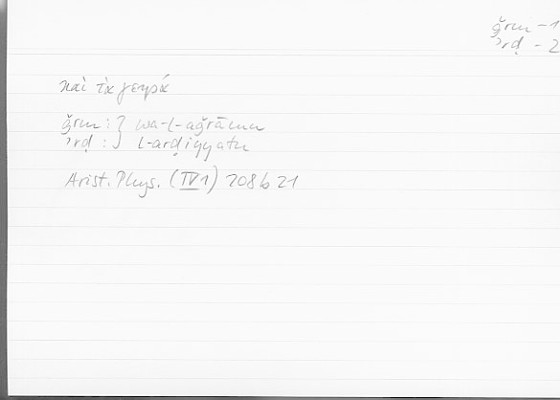 ǧrm – 1
ʾrḍ – 2
καὶ τὰ γεηρά
ǧrm : } wa-l-aǧrāmu
ʾrḍ : } l-arḍiyyatu
Arist. Phys. (IV 1) 208 b 21